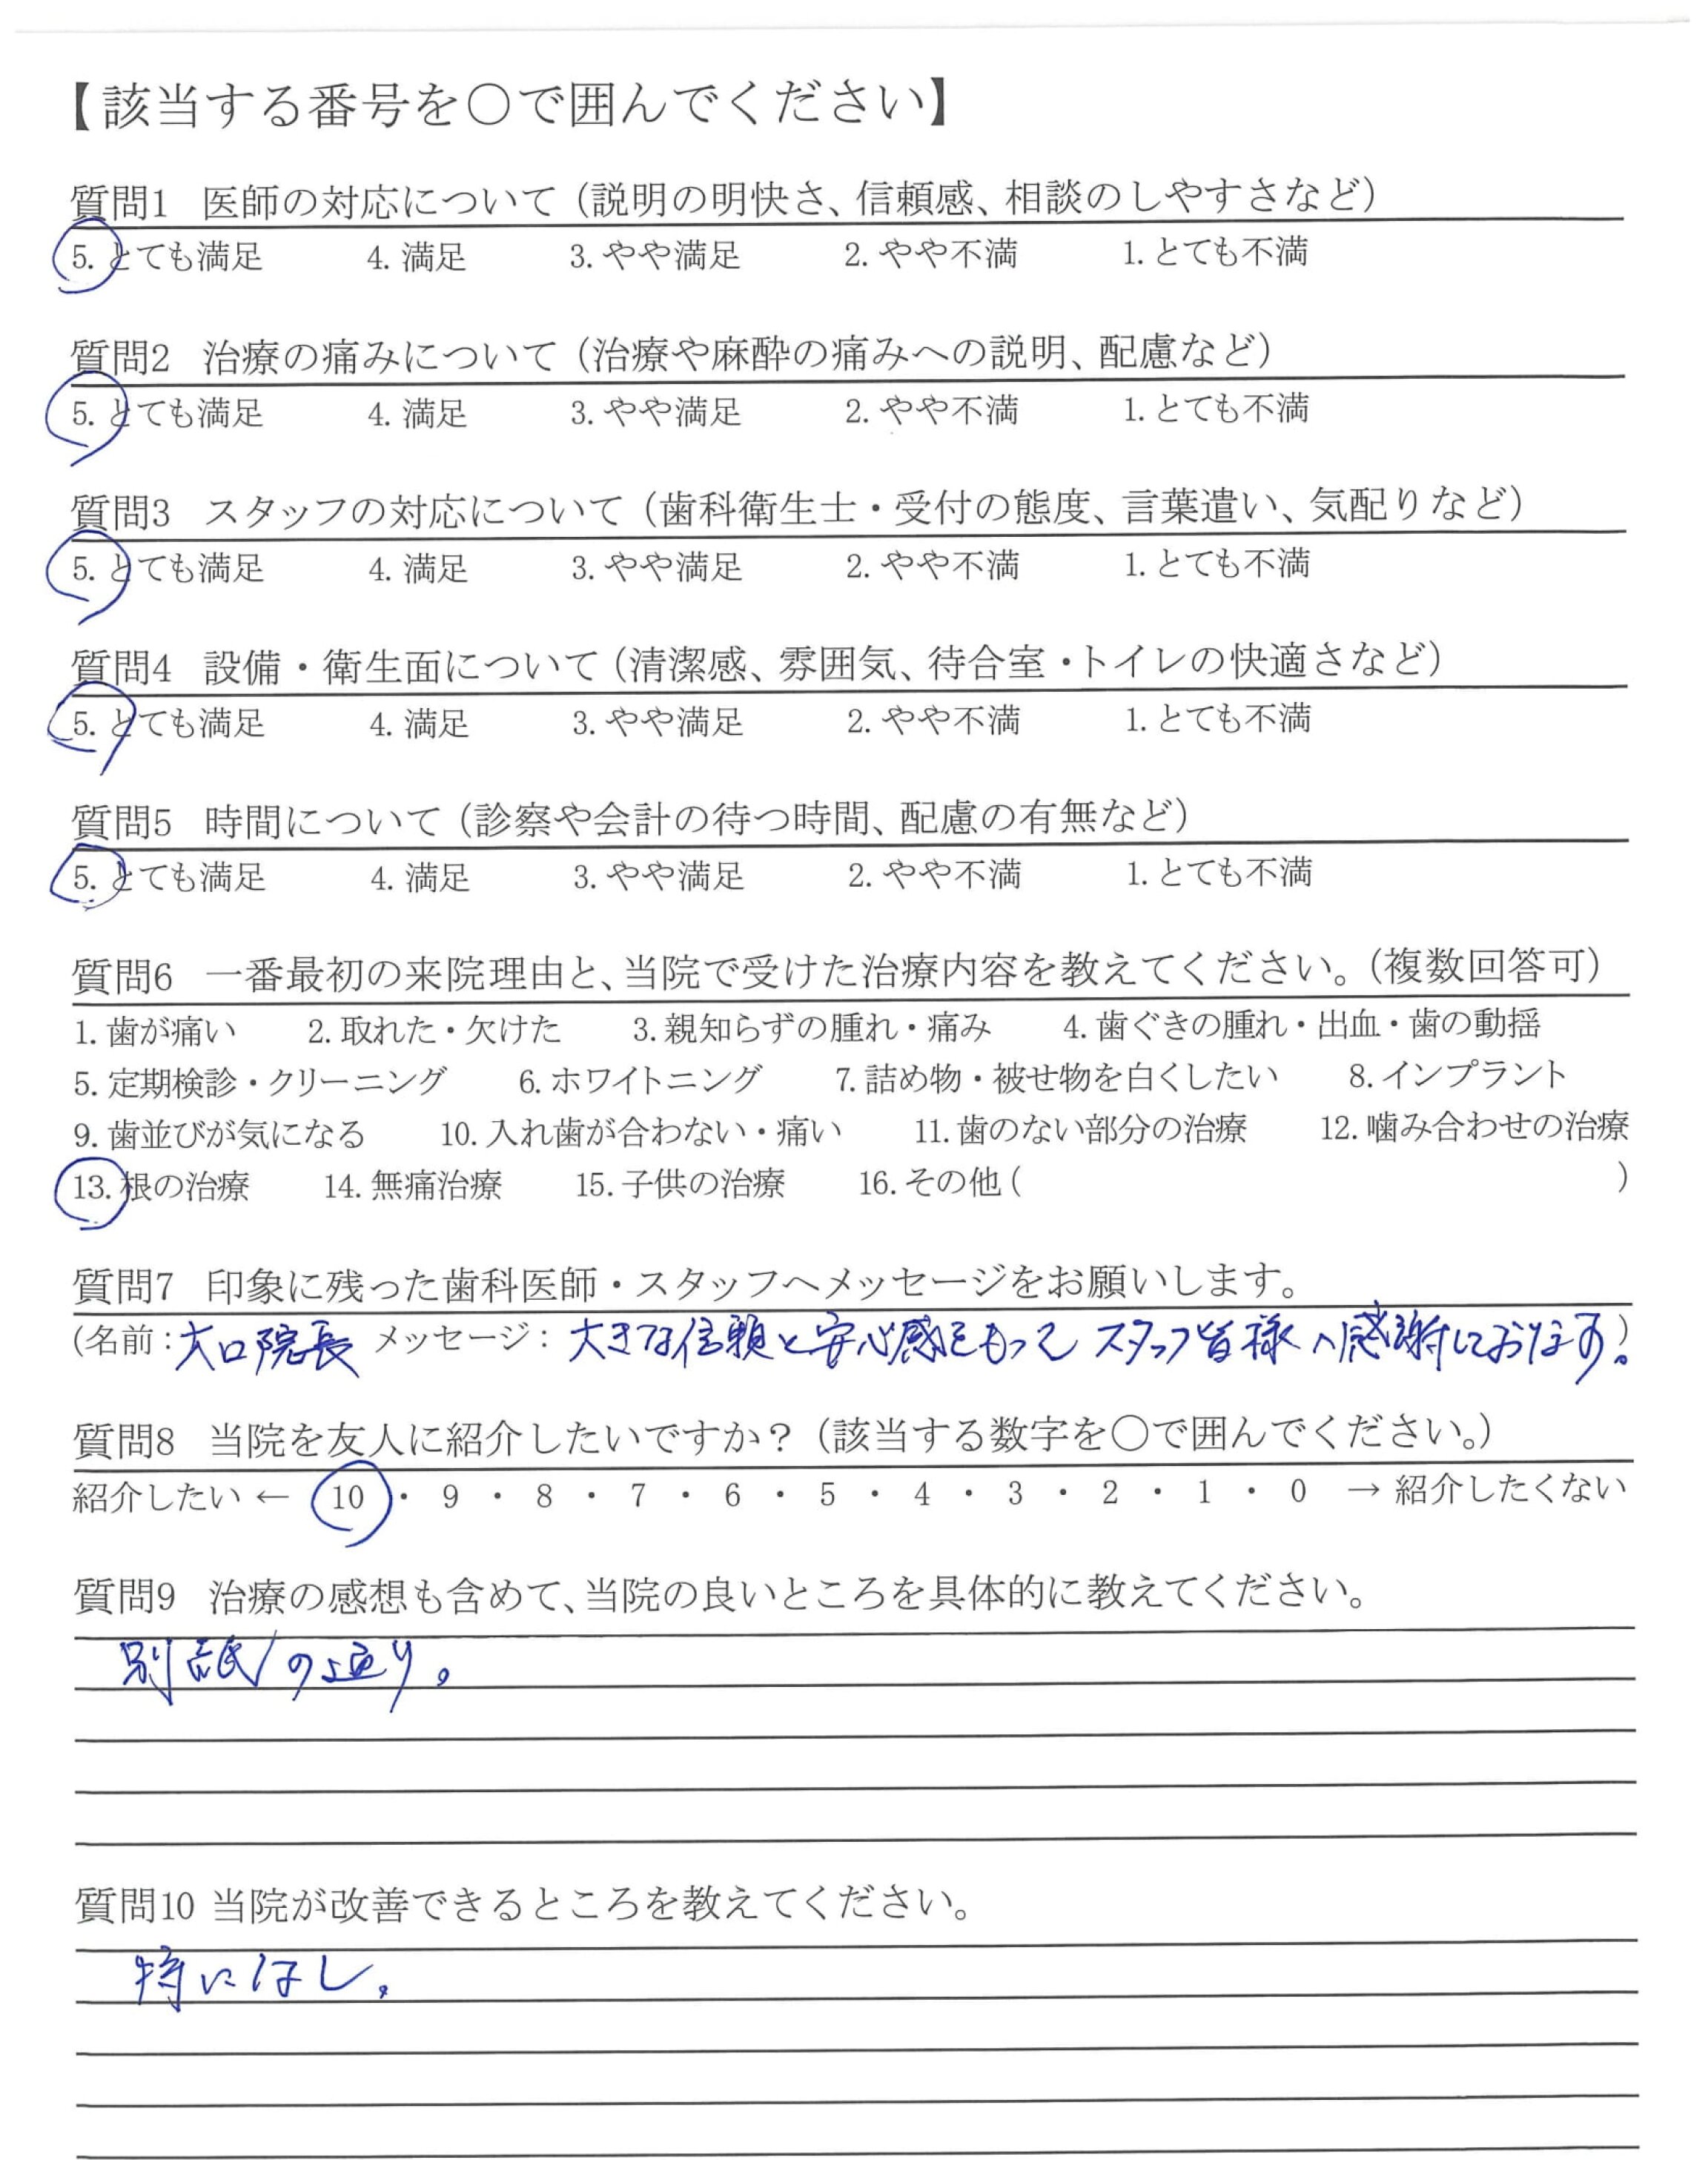 【該当する番号を〇で囲んでください】
質問1 医師の対応について（説明の明快さ、信頼感、相談のしやすさなど）
5. とても満足 4. 満足 3. やや満足 2. やや不満 1. とても不満
質問2 治療の痛みについて（治療や麻酔の痛みへの説明、配慮など）
5. とても満足 4. 満足 3. やや満足 2. やや不満 1. とても不満
質問3 スタッフの対応について（歯科衛生士・受付の態度、言葉遣い、気配りなど）
5. とても満足 4. 満足 3. やや満足 2. やや不満 1. とても不満
質問4 設備・衛生面について（清潔感、雰囲気、待合室・トイレの快適さなど）
5. とても満足 4. 満足 3. やや満足 2. やや不満 1. とても不満
質問5 時間について（診察や会計の待つ時間、配慮の有無など）
5. とても満足 4. 満足 3. やや満足 2. やや不満 1. とても不満
質問6 一番最初の来院理由と、当院で受けた治療内容を教えてください。（複数回答可）
1. 歯が痛い 2. 取れた・欠けた 3. 親知らずの腫れ・痛み 4. 歯ぐきの腫れ・出血・歯の動揺
5. 定期検診・クリーニング 6. ホワイトニング 7. 詰め物・被せ物を白くしたい 8. インプラント
9. 歯並びが気になる 10. 入れ歯が合わない・痛い 11. 歯のない部分の治療 12. 噛み合わせの治療
13. 根の治療 14. 無痛治療 15. 子供の治療 16. その他（ ）
質問7 印象に残った歯科医師・スタッフへメッセージをお願いします。
（名前：大口院長 メッセージ：大きな信頼と安心感をもって スタッフ皆様へ感謝しております。）
質問8 当院を友人に紹介したいですか？（該当する数字を〇で囲んでください。）
紹介したい ← 10 ・ 9 ・ 8 ・ 7 ・ 6 ・ 5 ・ 4 ・ 3 ・ 2 ・ 1 ・ 0 → 紹介したくない
質問9 治療の感想も含めて、当院の良いところを具体的に教えてください。
別紙の通り。
質問10 当院が改善できるところを教えてください。
特になし。